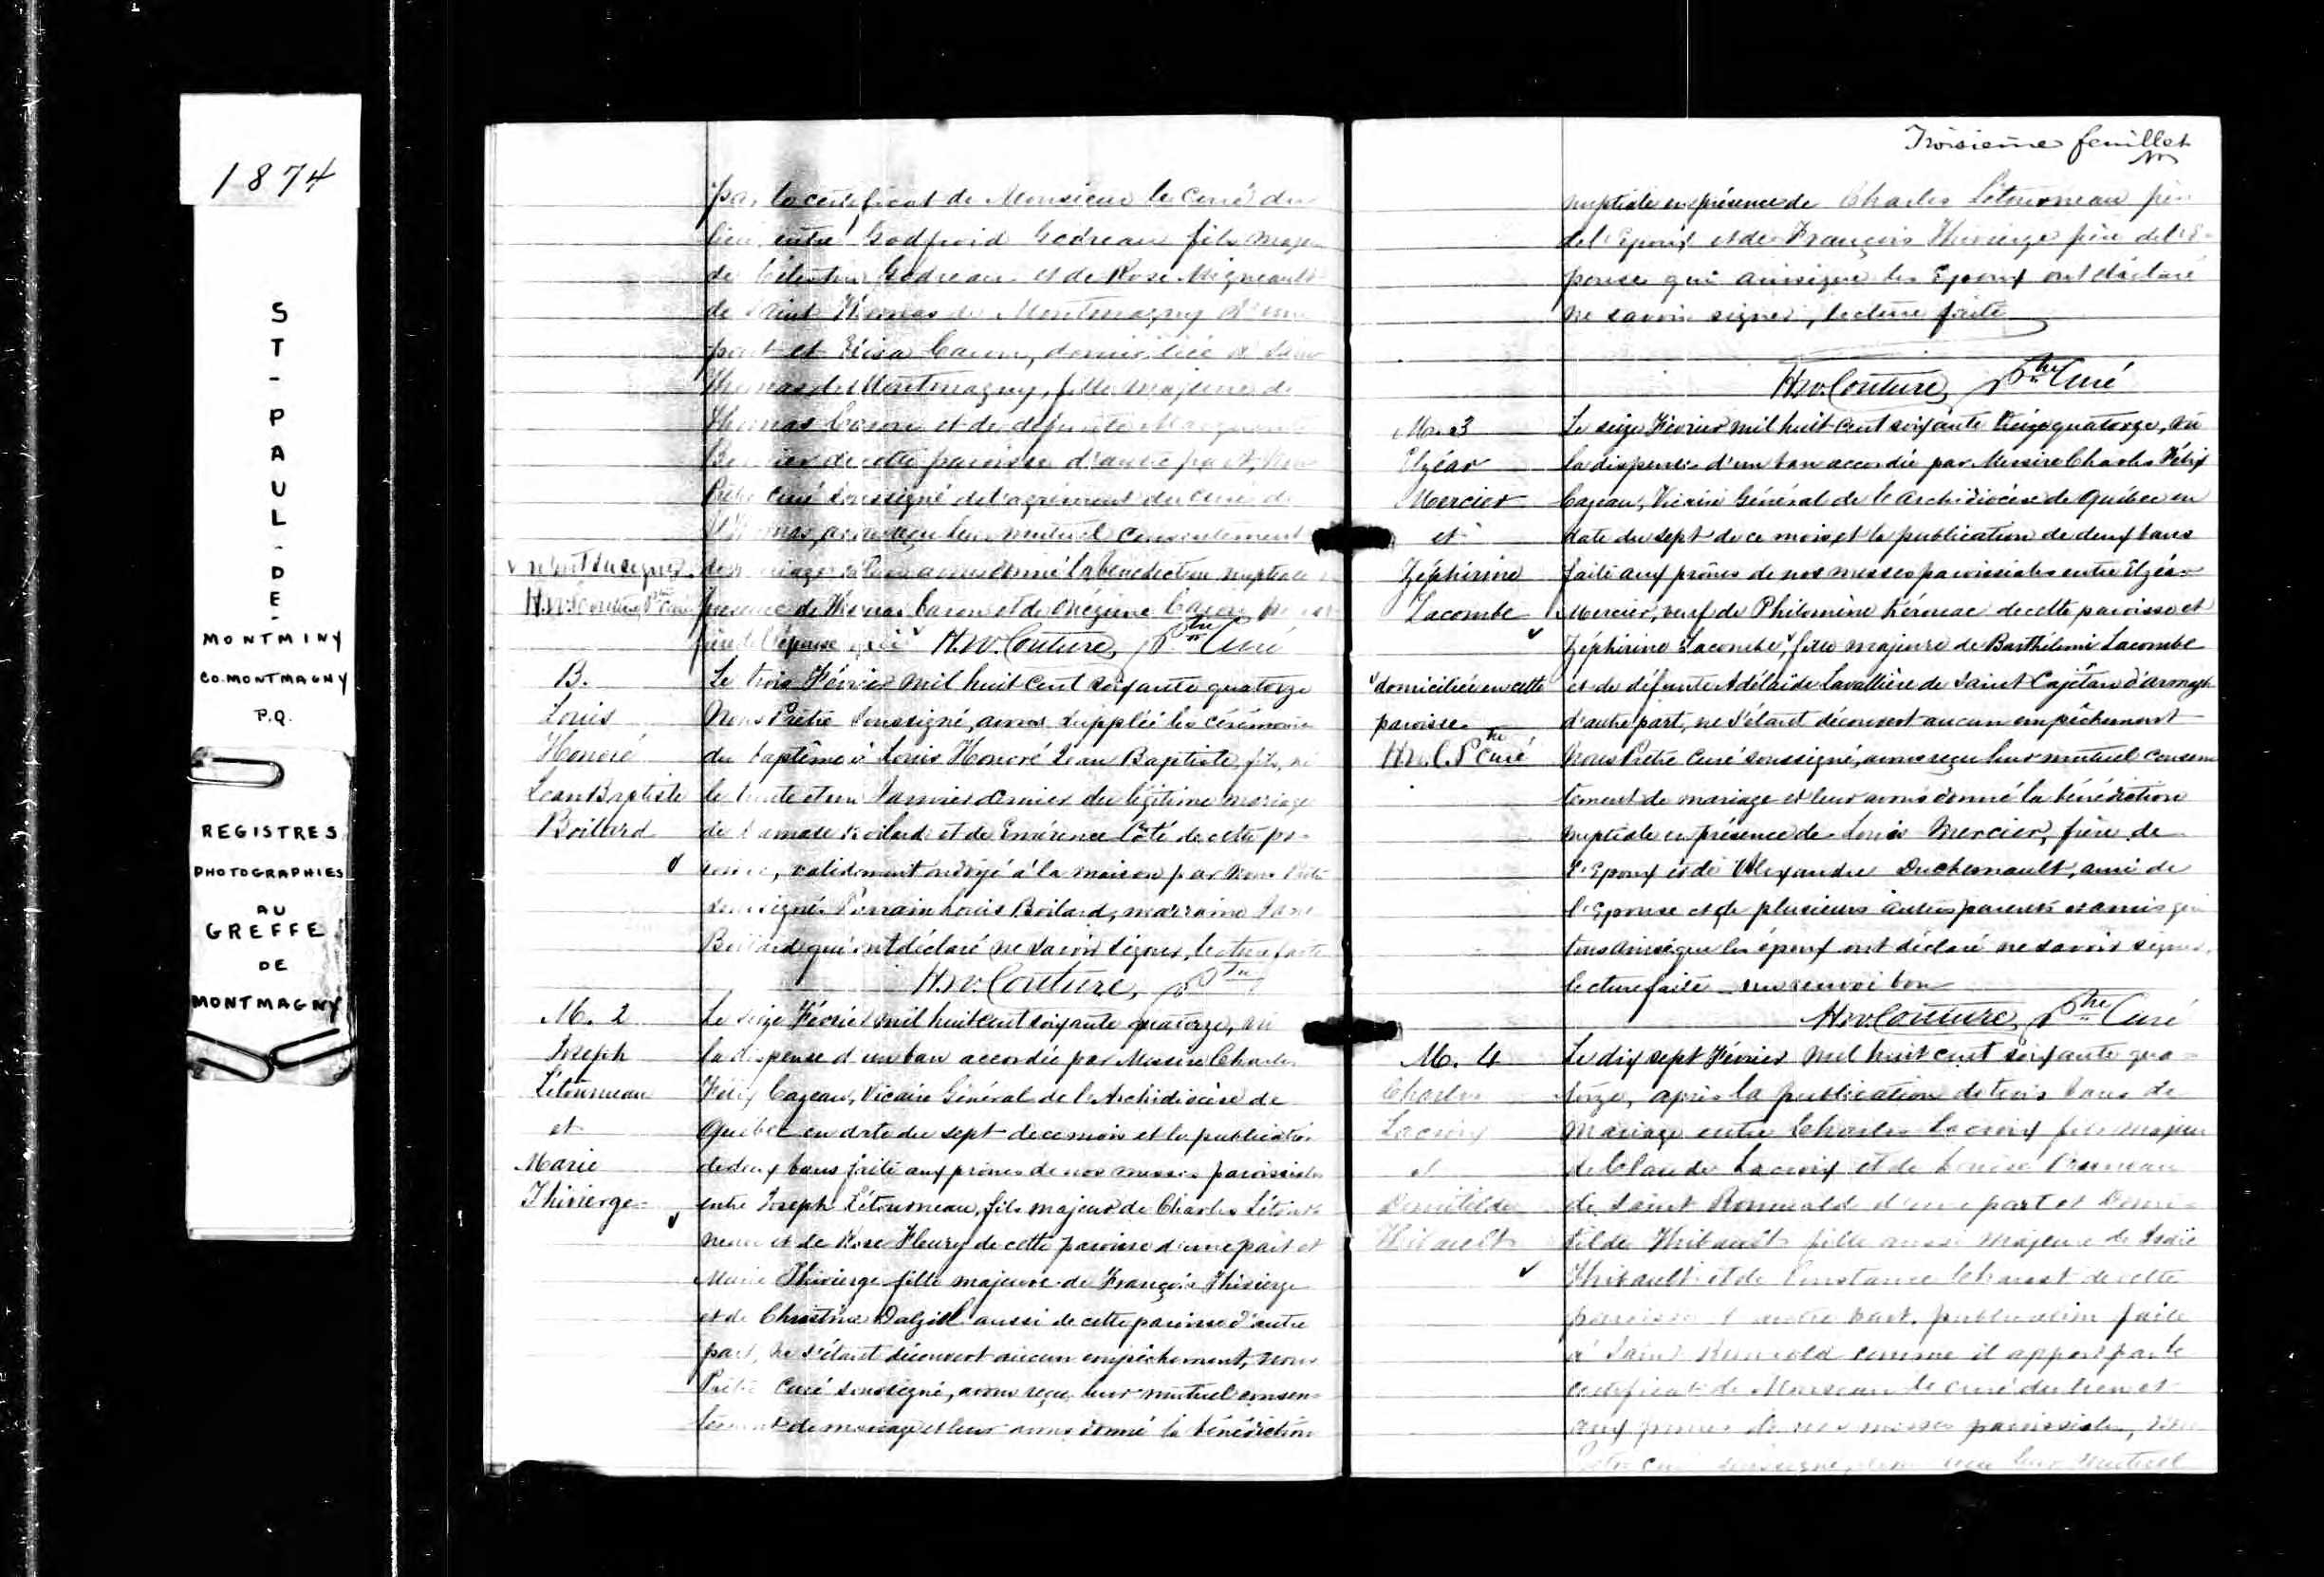 1874
ST-PAUL-DE-
MONTMINY
CO. MONTMAGNY
P.Q.
REGISTRES
PHOTOGRAPHIES
AU
GREFFE
DE
MONTMAGNY
par le certificat de Monsieur le Curé du
lieu entre Godfroid Godreau fils majeur
de Godreau et de Rose Migneault
de Saint Thomas de Montmagny d'une
part et Eliza Caron, domiciliée à Saint
Thomas de Montmagny, fille majeure de
Thomas Caron et de défunte
de cette paroisse d'autre part, Nous
Prêtre Curé soussigné de l'agrément du Curé de
St Thomas, avons reçu leur mutuel consentement
v n'ont su signer.
H.W. Couture, Ptre Curé
de mariage et leur avons donné la bénédiction nuptiale en
présence de Thomas Caron et de Onézime Caron
de l'épouse qui v H.W. Couture, Ptre Curé
B.
Louis
Honoré
Jean Baptiste
Boilard
Le trois Février mil huit cent soixante quatorze
Nous Prêtre soussigné, avons suppléé les cérémonies
du baptême à Louis Honoré Jean Baptiste fils, né
le trente et un Janvier dernier du légitime mariage
de Damase Boilard et de Emérence Côté de cette pa-
roisse, validement ondoyé à la maison par Nous Prêtre
soussigné. Parrain Louis Boilard, marraine
Boilard qui ont déclaré ne savoir signer, lecture faite
H.W. Couture, Ptre
M. 2
Joseph
Létourneau
et
Marie
Thivierge
Le seize Février mil huit cent soixante quatorze, vu
la dispense d'un ban accordée par Messire Charles
Félix Cazeau, Vicaire Général de l'Archidiocèse de
Québec en date du sept de ce mois et la publication
de deux bans faite aux prônes de nos messes paroissiales
entre Joseph Létourneau, fils majeur de Charles Létour-
neau et de Rose Fleury de cette paroisse d'une part et
Marie Thivierge fille majeure de François Thivierge
et de Christine Dalziel aussi de cette paroisse d'autre
part, ne s'étant découvert aucun empêchement, nous
Prêtre Curé soussigné, avons reçu leur mutuel consen-
tement de mariage et leur avons donné la bénédiction
Troisième feuillet
nuptiale en présence de Charles Létourneau père
de l'Epoux et de François Thivierge père de l'E-
pouse qui ainsi que les Epoux ont déclaré
ne savoir signer, lecture faite
H.W. Couture, Ptre Curé
M. 3
Elzéar
Mercier
et
Zéphirine
Lacombe
v domiciliée en cette
paroisse.
H.W.C. Ptre Curé
Le seize Février mil huit cent soixante quatorze, vu
la dispense d'un ban accordée par Messire Charles Félix
Cazeau, Vicaire Général de l'Archidiocèse de Québec en
date du sept de ce mois, et la publication de deux bans
faite aux prônes de nos messes paroissiales entre Elzéar
Mercier, veuf de Philomène Kérouac de cette paroisse et
Zéphirine Lacombe v fille majeure de Barthélemi Lacombe
et de défunte Adélaïde Lavallière de Saint Cajétan d'Armagh
d'autre part, ne s'étant découvert aucun empêchement
Nous Prêtre Curé soussigné, avons reçu leur mutuel consen-
tement de mariage et leur avons donné la bénédiction
nuptiale en présence de Louis Mercier, frère de
l'Epoux et de Alexandre Duchesnault, ami de
l'Epouse et de plusieurs autres parents et amis qui
tous ainsi que les époux ont déclaré ne savoir signer,
lecture faite un renvoi bon
H.W. Couture, Ptre Curé
M. 4
Charles
Lacroix
et
Deméthilde
Thibault
Le dix sept Février mil huit cent soixante qua-
torze, après la publication de trois bans de
mariage entre Charles Lacroix fils majeur
de Claude Lacroix et de Louise
de Saint Romuald d'une part et Demé-
tilde Thibault fille aussi majeure de
Thibault et de Constance Chouest de cette
paroisse d'autre part, publication faite
à Saint Romuald comme il appert par le
certificat de Monsieur le Curé du lieu et
aux prônes de nos messes paroissiales, Nous
Prêtre Curé soussigné, avons reçu leur mutuel